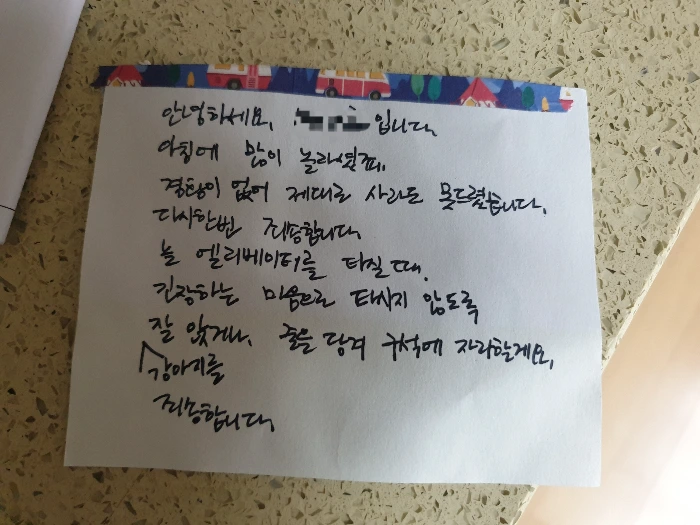 안녕하세요, 입니다.
아침에 많이 놀라셨죠.
경황이 없어 제대로 사과도 못드렸습니다.
다시한번 죄송합니다.
늘 엘리베이터를 타실 때.
긴장하는 마음으로 타시지 않도록
잘 앉거나, 줄을 당겨 구석에 자리할게요.
강아지를
죄송합니다.